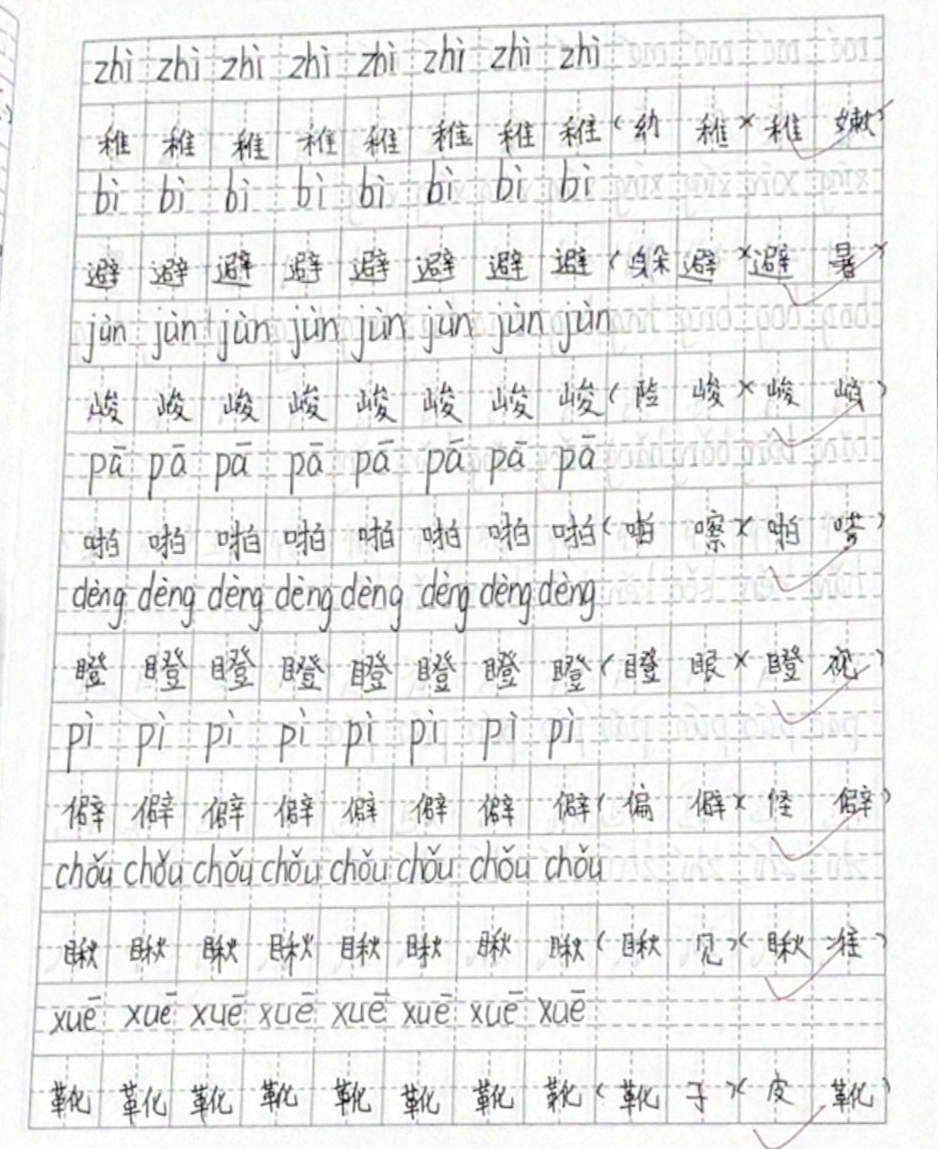 zhì zhì zhì zhì zhì zhì zhì zhì
稚 稚 稚 稚 稚 稚 稚 稚 (幼 稚)(稚 嫩)
bì bì bì bì bì bì bì bì
避 避 避 避 避 避 避 避 (躲 避)(避 暑)
jùn jùn jùn jùn jùn jùn jùn jùn
峻 峻 峻 峻 峻 峻 峻 峻 (险 峻)(峻 峭)
pā pā pā pā pā pā pā pā
啪 啪 啪 啪 啪 啪 啪 啪 (啪 嚓)(啪 嗒)
dèng dèng dèng dèng dèng dèng dèng dèng
瞪 瞪 瞪 瞪 瞪 瞪 瞪 瞪 (瞪 眼)(瞪 视)
pì pì pì pì pì pì pì pì
僻 僻 僻 僻 僻 僻 僻 僻 (偏 僻)(怪 僻)
chǒu chǒu chǒu chǒu chǒu chǒu chǒu chǒu
瞅 瞅 瞅 瞅 瞅 瞅 瞅 瞅 (瞅 见)(瞅 准)
xuē xuē xuē xuē xuē xuē xuē xuē
靴 靴 靴 靴 靴 靴 靴 靴 (靴 子)(皮 靴)